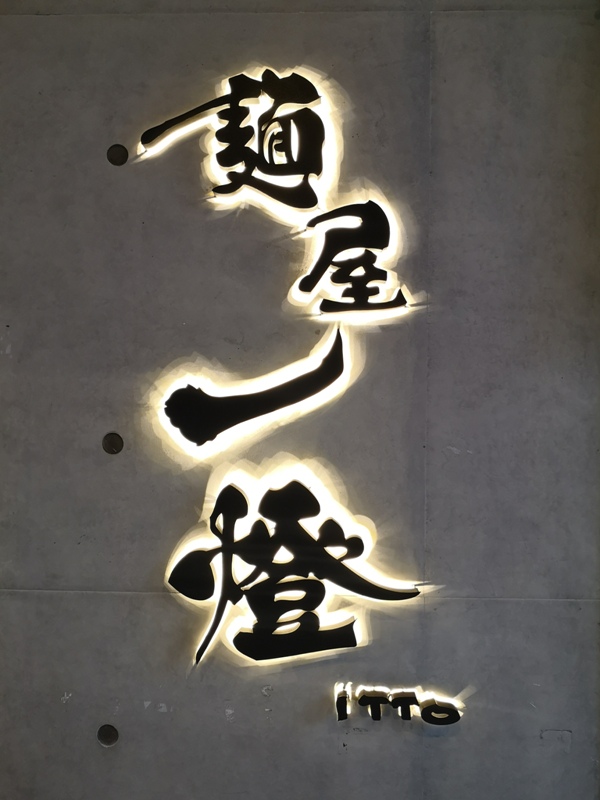 麺屋一燈
ITTO